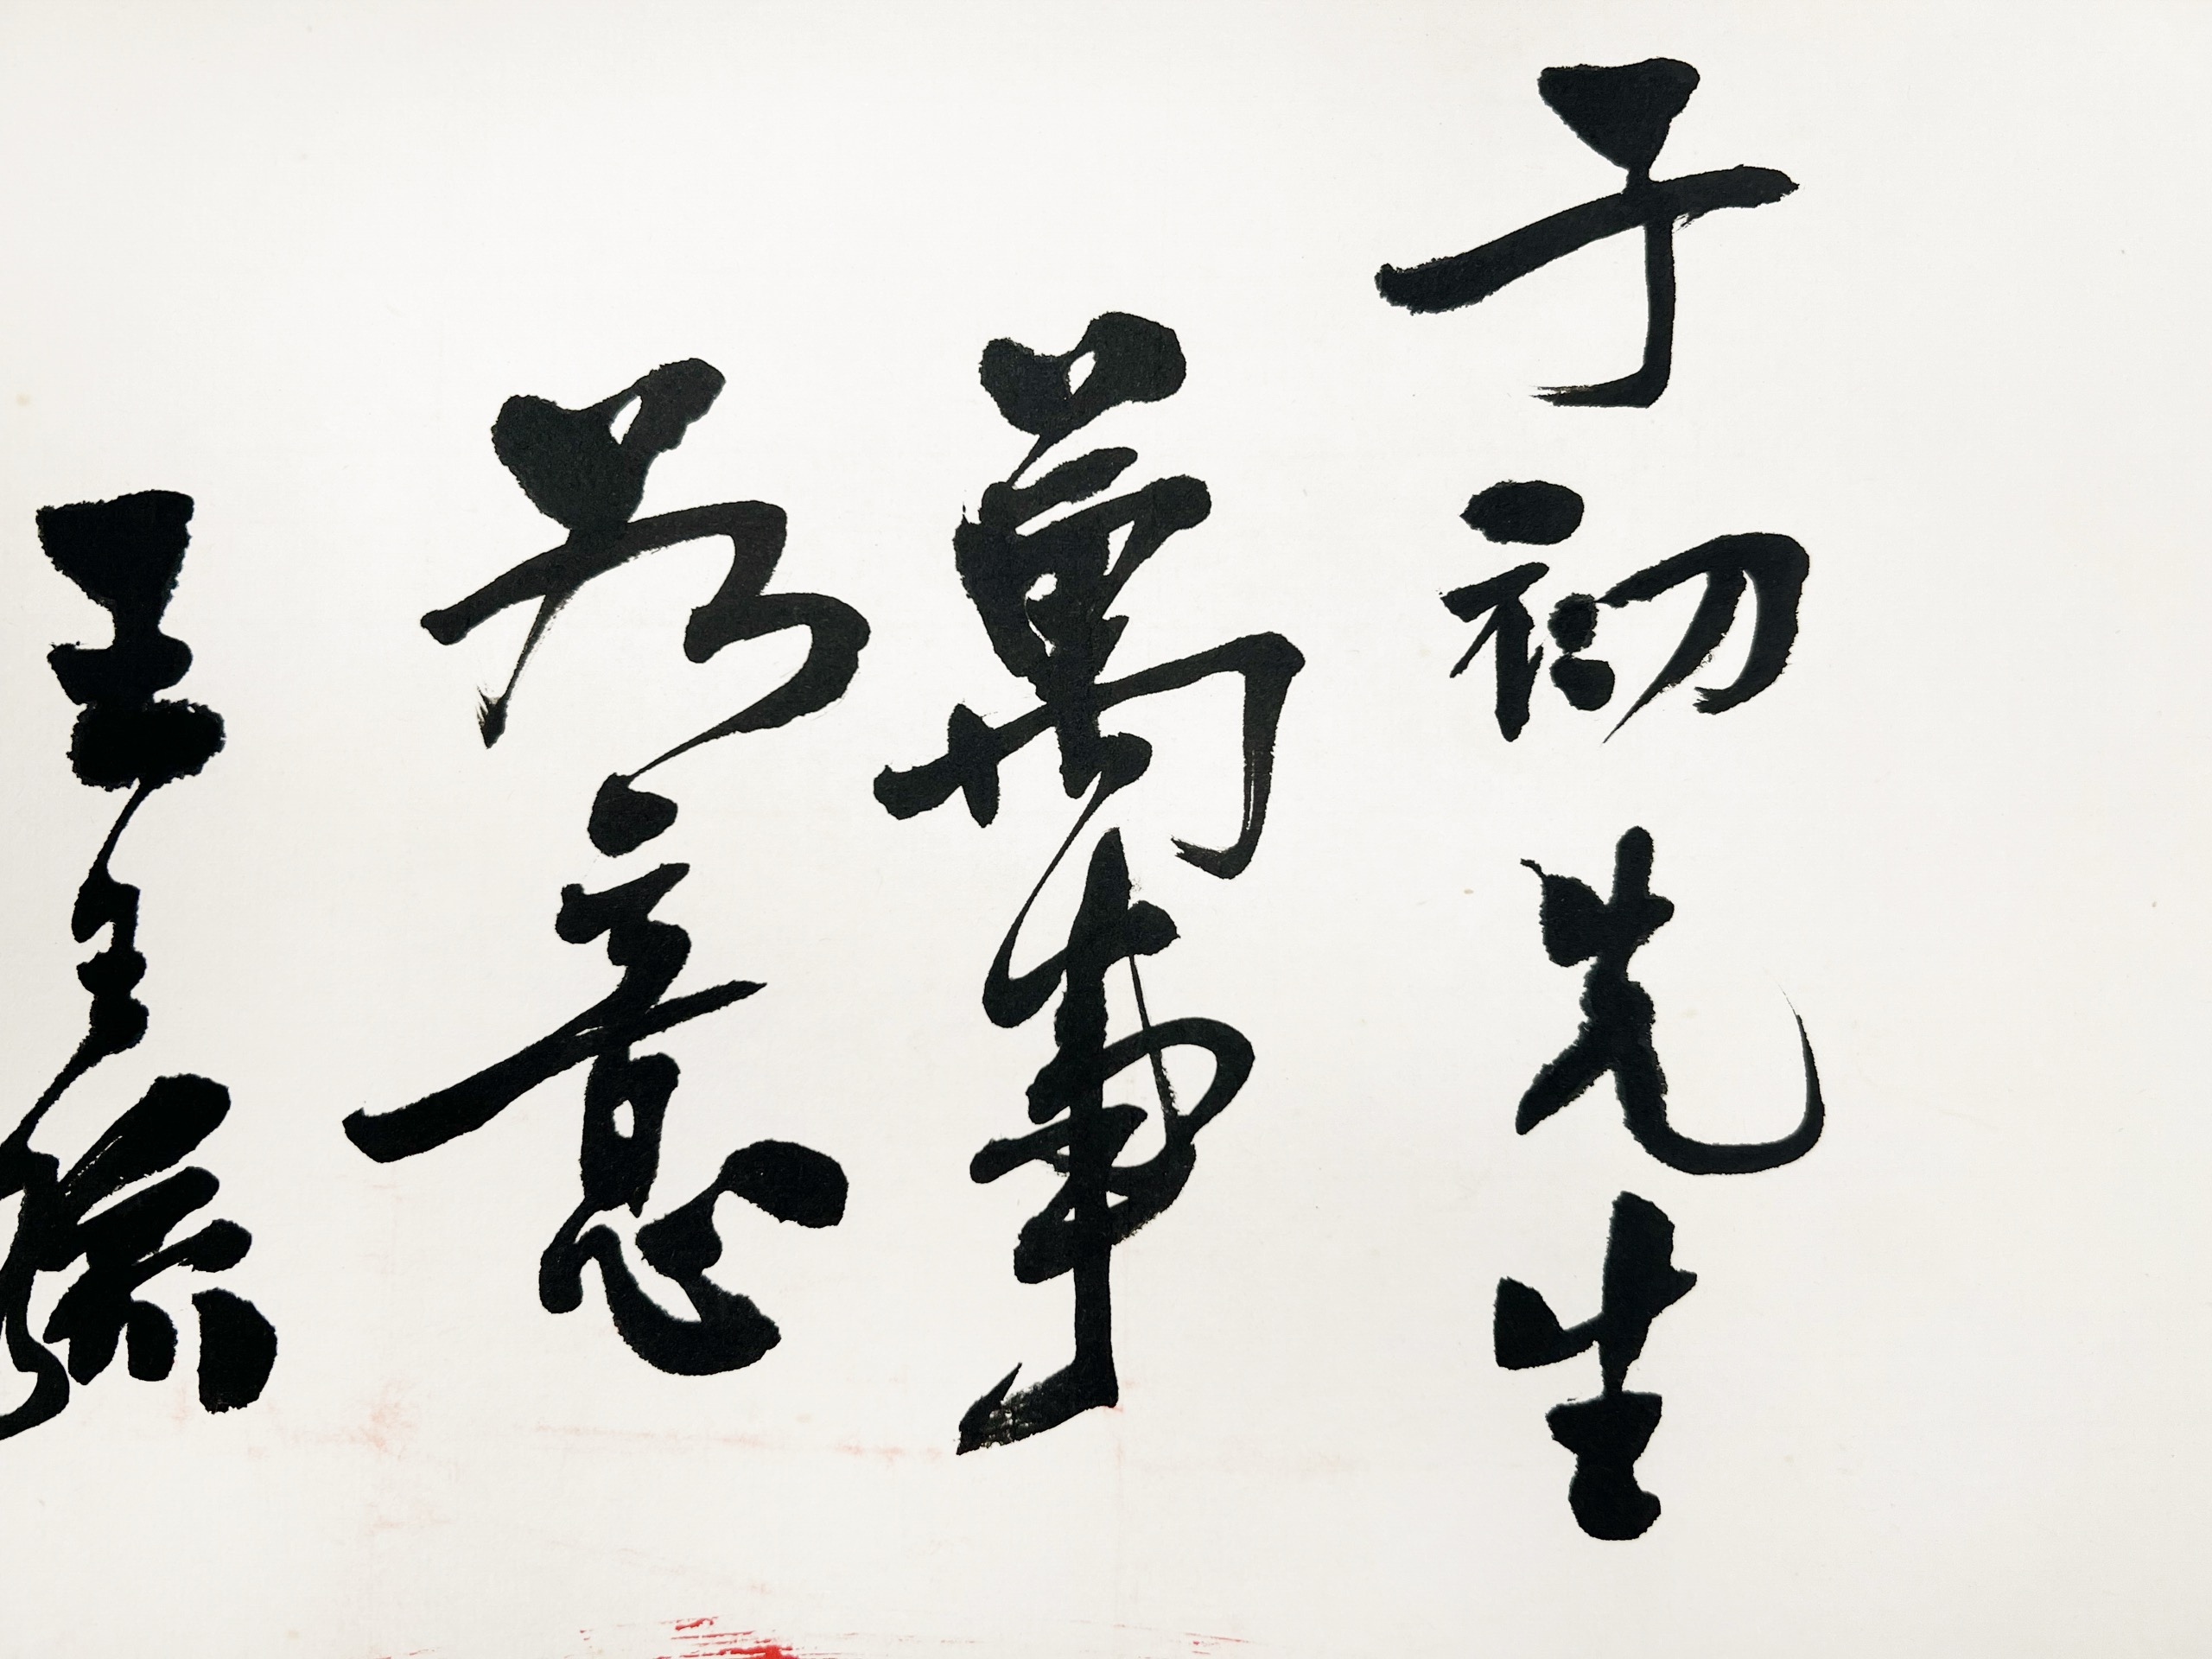 于初先生
萬事
如意
王